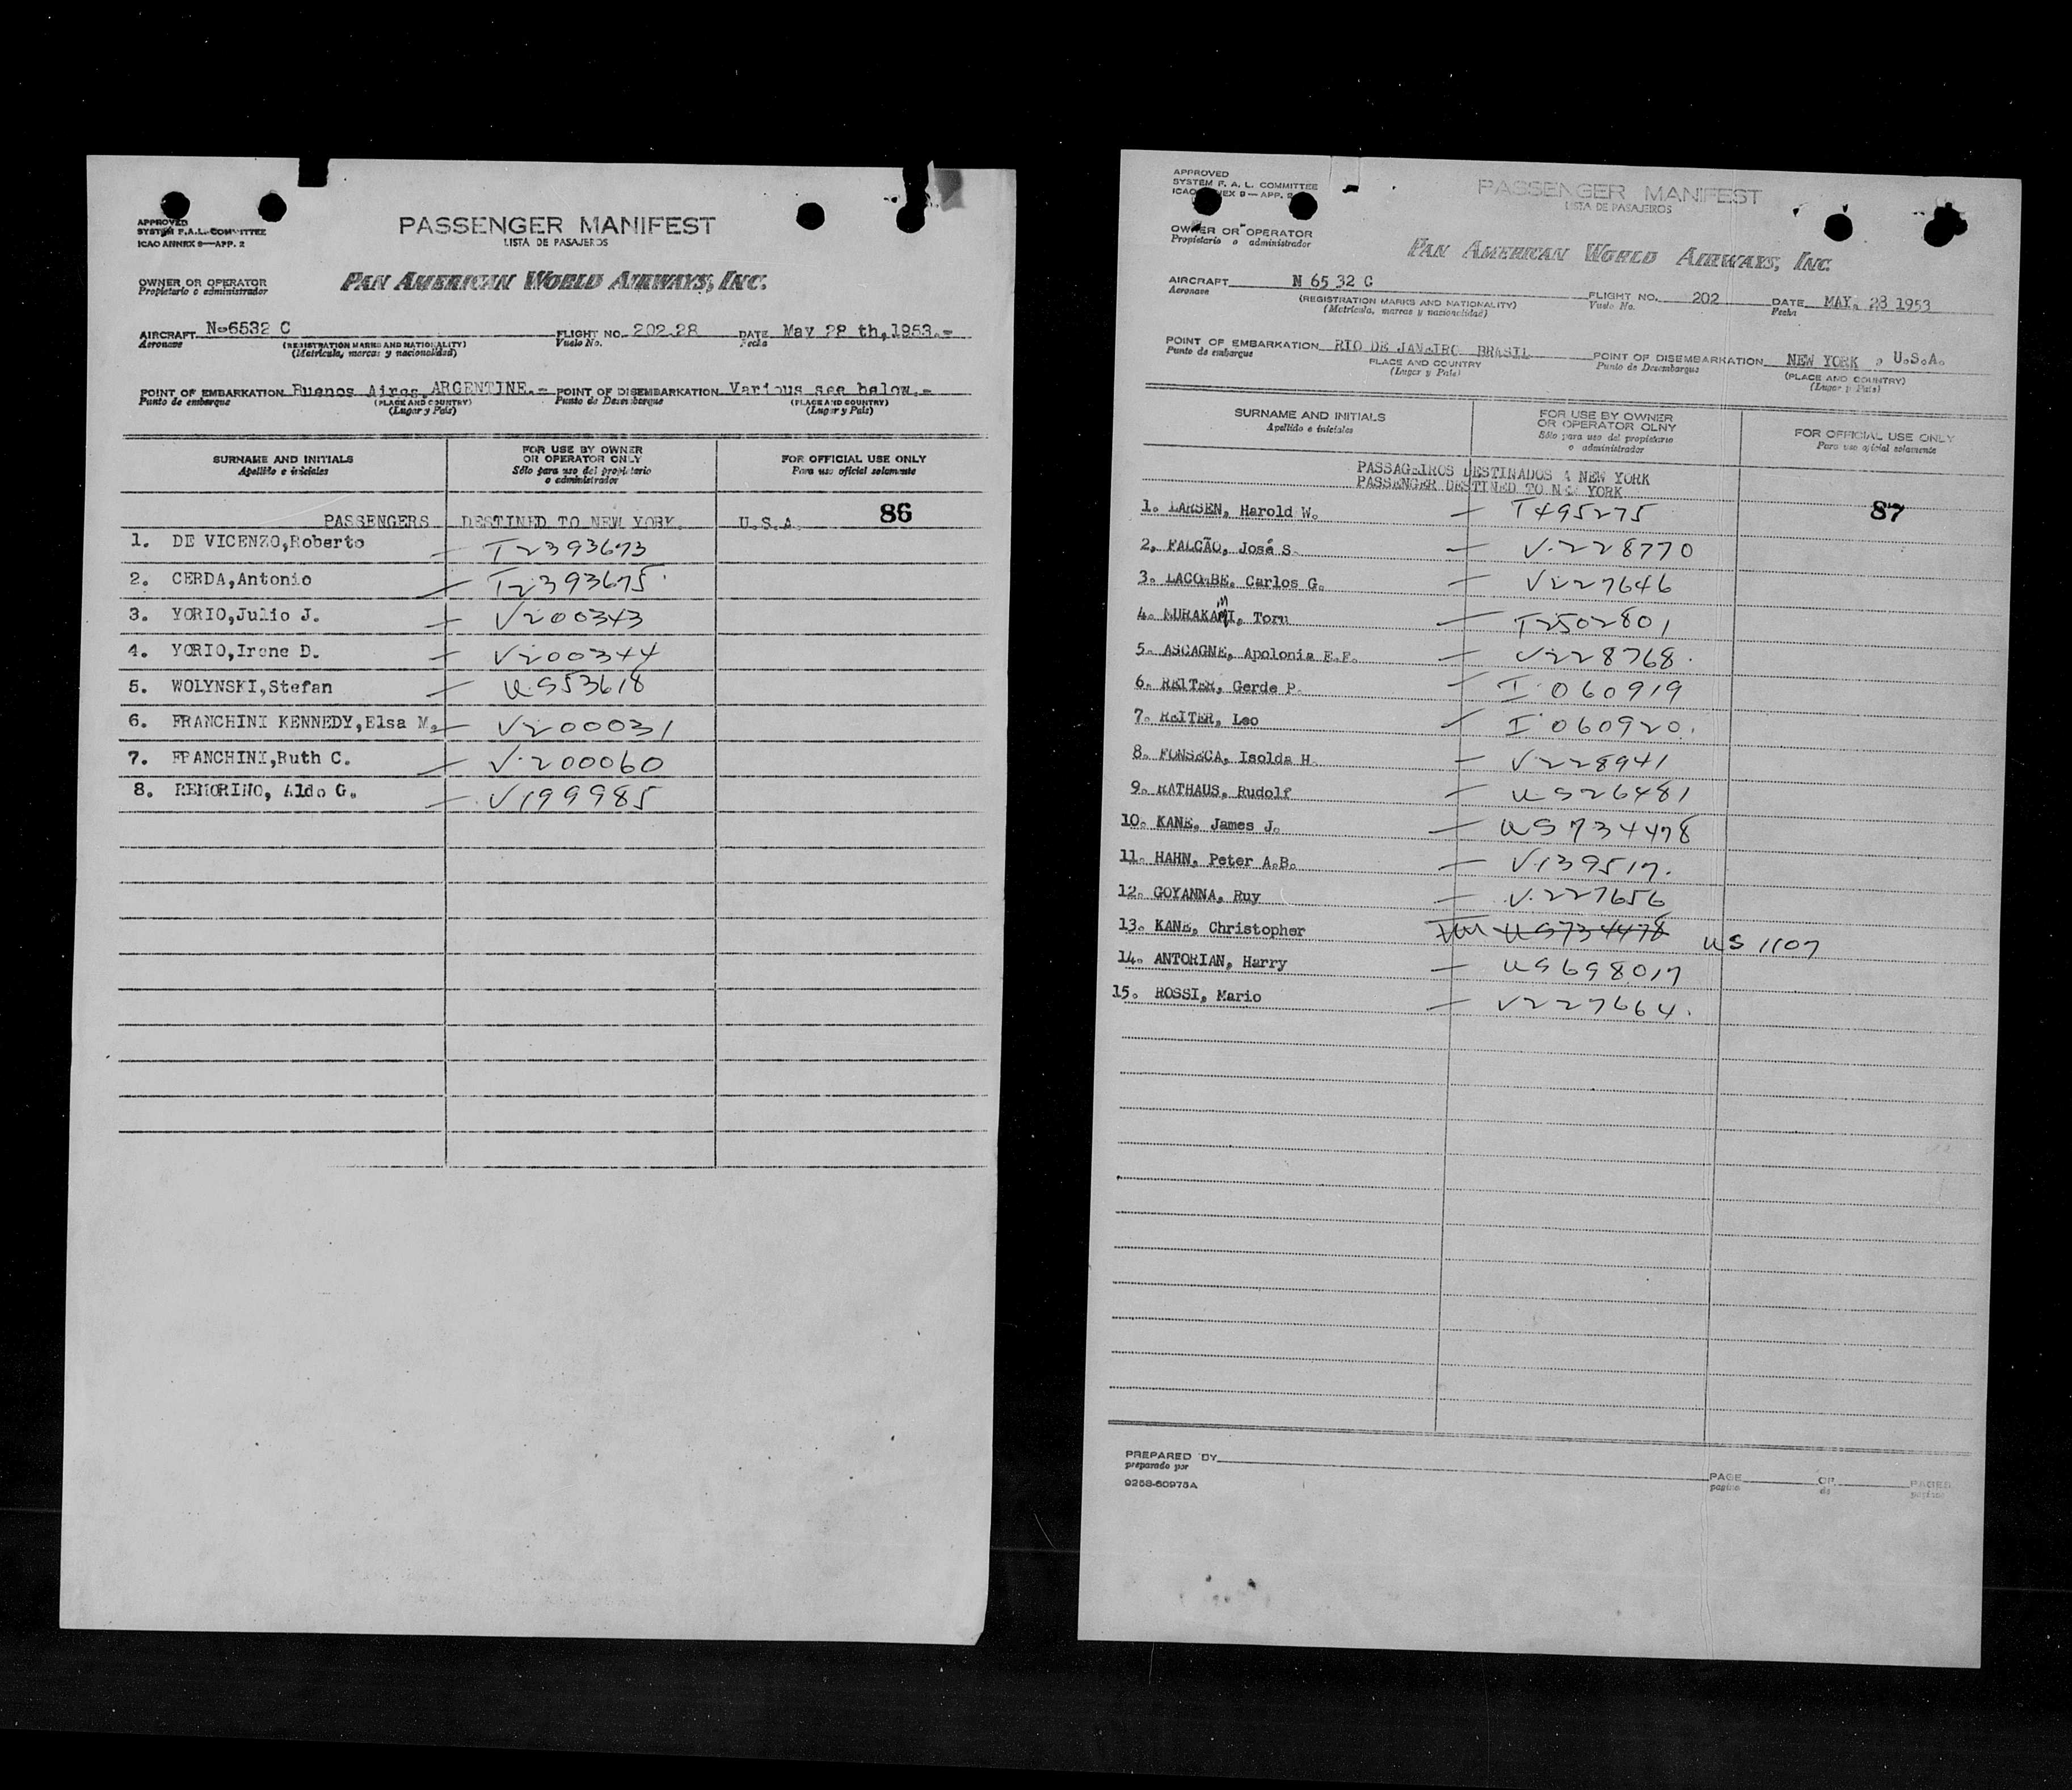 APPROVED
SYSTEM F.A.L. COMMITTEE
ICAO ANNEX 9—APP. 2
PASSENGER MANIFEST
LISTA DE PASAJEROS
OWNER OR OPERATOR
Propietario o administrador
PAN AMERICAN WORLD AIRWAYS, INC.
AIRCRAFT N-6532 C FLIGHT NO. 202.28 DATE May 28 th,1953.-
Aeronave (REGISTRATION MARKS AND NATIONALITY) Vuelo No. Fecha
(Matrícula, marcas y nacionalidad)
POINT OF EMBARKATION Buenos Aires, ARGENTINE.- POINT OF DISEMBARKATION Various see below.-
Punto de embarque (PLACE AND COUNTRY) Punto de Desembarque (PLACE AND COUNTRY)
(Lugar y País) (Lugar y País)
SURNAME AND INITIALS FOR USE BY OWNER OR OPERATOR ONLY FOR OFFICIAL USE ONLY
Apellido e iniciales Sólo para uso del propietario o administrador Para uso oficial solamente
PASSENGERS DESTINED TO NEW YORK. U.S.A. 86
1. DE VICENZO,Roberto — T2393673
2. CERDA,Antonio — T2393675
3. YORIO,Julio J. — V200343
4. YORIO,Irene D. — V200344
5. WOLYNSKI,Stefan — US53618
6. FRANCHINI KENNEDY,Elsa M. — V200031
7. FRANCHINI,Ruth C. — V.200060
8. REMORINO, Aldo G. — V199985
APPROVED
SYSTEM F. A. L. COMMITTEE
ICAO ANNEX 9—APP. 2
PASSENGER MANIFEST
LISTA DE PASAJEROS
OWNER OR OPERATOR
Propietario o administrador
PAN AMERICAN WORLD AIRWAYS, INC.
AIRCRAFT N 65 32 C FLIGHT NO. 202 DATE MAY. 28 1953
Aeronave (REGISTRATION MARKS AND NATIONALITY) Vuelo No. Fecha
(Matrícula, marcas y nacionalidad)
POINT OF EMBARKATION RIO DE JANEIRO BRASIL POINT OF DISEMBARKATION NEW YORK , U.S.A.
Punto de embarque PLACE AND COUNTRY Punto de Desembarque (PLACE AND COUNTRY)
(Lugar y País) (Lugar y País)
SURNAME AND INITIALS FOR USE BY OWNER OR OPERATOR OLNY FOR OFFICIAL USE ONLY
Apellido e iniciales Sólo para uso del propietario o administrador Para uso oficial solamente
PASSAGEIROS DESTINADOS A NEW YORK
PASSENGER DESTINED TO NEW YORK
1. LARSEN, Harold W. — T495275 87
2. FALCÃO, José S. — V.228770
3. LACOMBE, Carlos G. — V227646
4. MURAKAMI, Toru — T2502801
5. ASCAGNE, Apolonia E.F. — V228768.
6. REITER, Gerde P. — I 060919
7. REITER, Leo — I 060920.
8. FONSECA, Isolda H. — V228941
9. RATHAUS, Rudolf — US26481
10. KANE, James J. — US734478
11. HAHN, Peter A.B. — V.139517.
12. GOYANNA, Ruy — V.227656
13. KANE, Christopher US734478 US 1107
14. ANTORIAN, Harry — US698017
15. ROSSI, Mario — V227664.
PREPARED BY
preparado por PAGE OF PAGES
pagina de paginas
9258-60973A